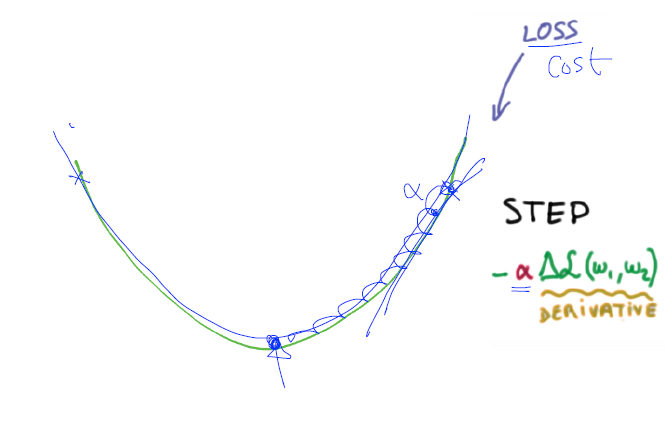 LOSS
Cost
α
STEP
- α Δℒ(ω₁,ω₂)
DERIVATIVE